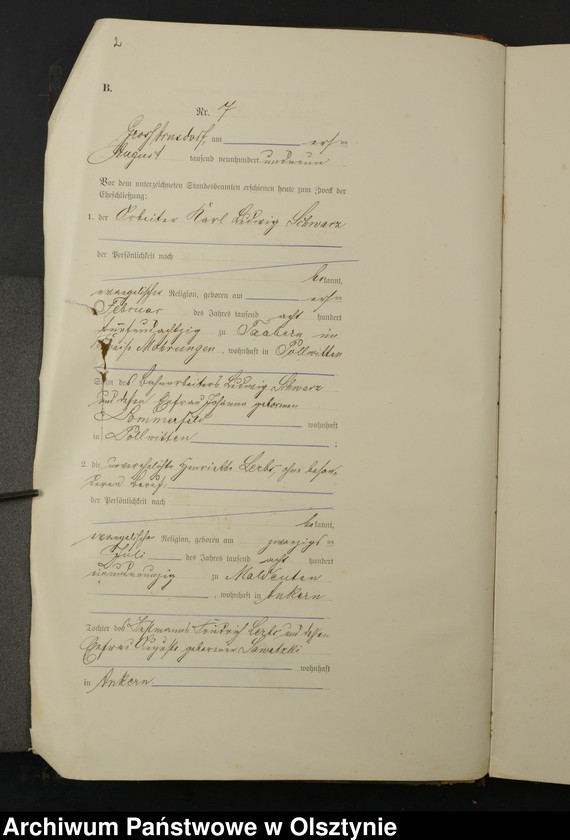 2
B.
Nr. 7
Großarnsdorf, am ersten
August tausend neunhundert undneun
Vor dem unterzeichneten Standesbeamten erschienen heute zum Zweck der
Eheschließung:
1. der Arbeiter Karl Ludwig Schwarz
der Persönlichkeit nach
bekannt,
evangelischer Religion, geboren am ersten
Februar des Jahres tausend acht hundert
fünfundachtzig zu Taabern im
Kreise Mohrungen, wohnhaft in Pollwitten
Sohn des Bahnarbeiters Ludwig Schwarz
und dessen Ehefrau Johanna geborenen
Sommerfeld wohnhaft
in Pollwitten ;
2. die unverehelichte Henriette ohne beson-
deren Beruf,
der Persönlichkeit nach
bekannt,
evangelischer Religion, geboren am zwanzigsten
Juli des Jahres tausend acht hundert
neunundneunzig zu Maldeuten
, wohnhaft in Ankern
Tochter des Friedrich und dessen
Ehefrau Auguste geborenen Sawetzki
wohnhaft
in Ankern
Archiwum Państwowe w Olsztynie